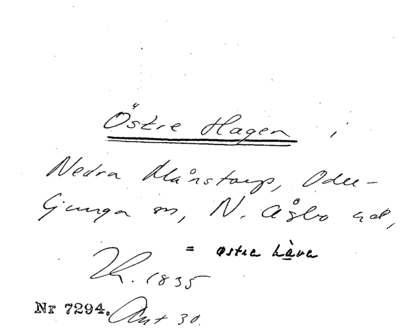 Östre Hagen i
Nedra Månstorp, Oder-
ljunga sn, N. Åsbo hd,
= östra Làva
1835
Nr 7294. Ant 30.